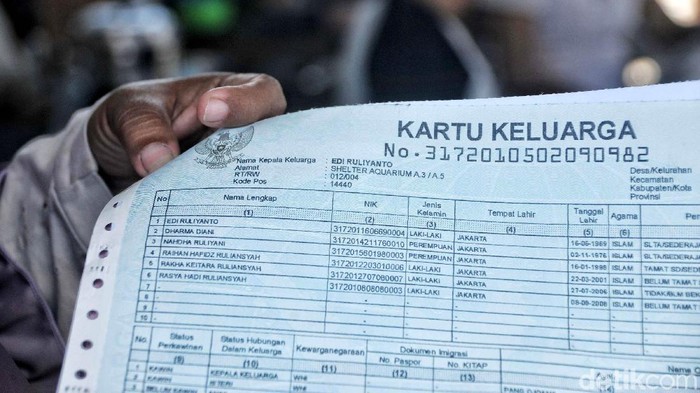 KARTU KELUARGA
No. 3172010502090982
Nama Kepala Keluarga : EDI RULIYANTO
Alamat : SHELTER AQUARIUM A.3 / A.5
RT/RW : 012/004
Kode Pos : 14440
Desa/Kelurahan
Kecamatan
Kabupaten/Kota
Provinsi
No Nama Lengkap NIK Jenis Kelamin Tempat Lahir Tanggal Lahir Agama
(1) (2) (3) (4) (5) (6)
1 EDI RULIYANTO 3172011606690004 LAKI-LAKI JAKARTA ISLAM
2 DHARMA DIANI 3172014211760010 PEREMPUAN JAKARTA 02-11-1976 ISLAM
3 NAHDHA RULIYANI 3172015601980003 PEREMPUAN JAKARTA 16-01-1998 ISLAM
4 RAIHAN HAFIDZ RULIANSYAH 3172012203010006 LAKI-LAKI JAKARTA 22-03-2001 ISLAM
5 RAKHA KEITARA RULIANSYAH 3172012707060007 LAKI-LAKI JAKARTA 27-07-2006 ISLAM
6 RASYA HADI RULIANSYAH 3172010808080003 LAKI-LAKI JAKARTA 08-08-2008 ISLAM
7
8
9
10
Status Perkawinan Status Hubungan Dalam Keluarga Kewarganegaraan Dokumen Imigrasi
No. Paspor No. KITAP
(9) (10) (11) (12) (13)
KAWIN KEPALA KELUARGA WNI
KAWIN ISTERI WNI
detikcom